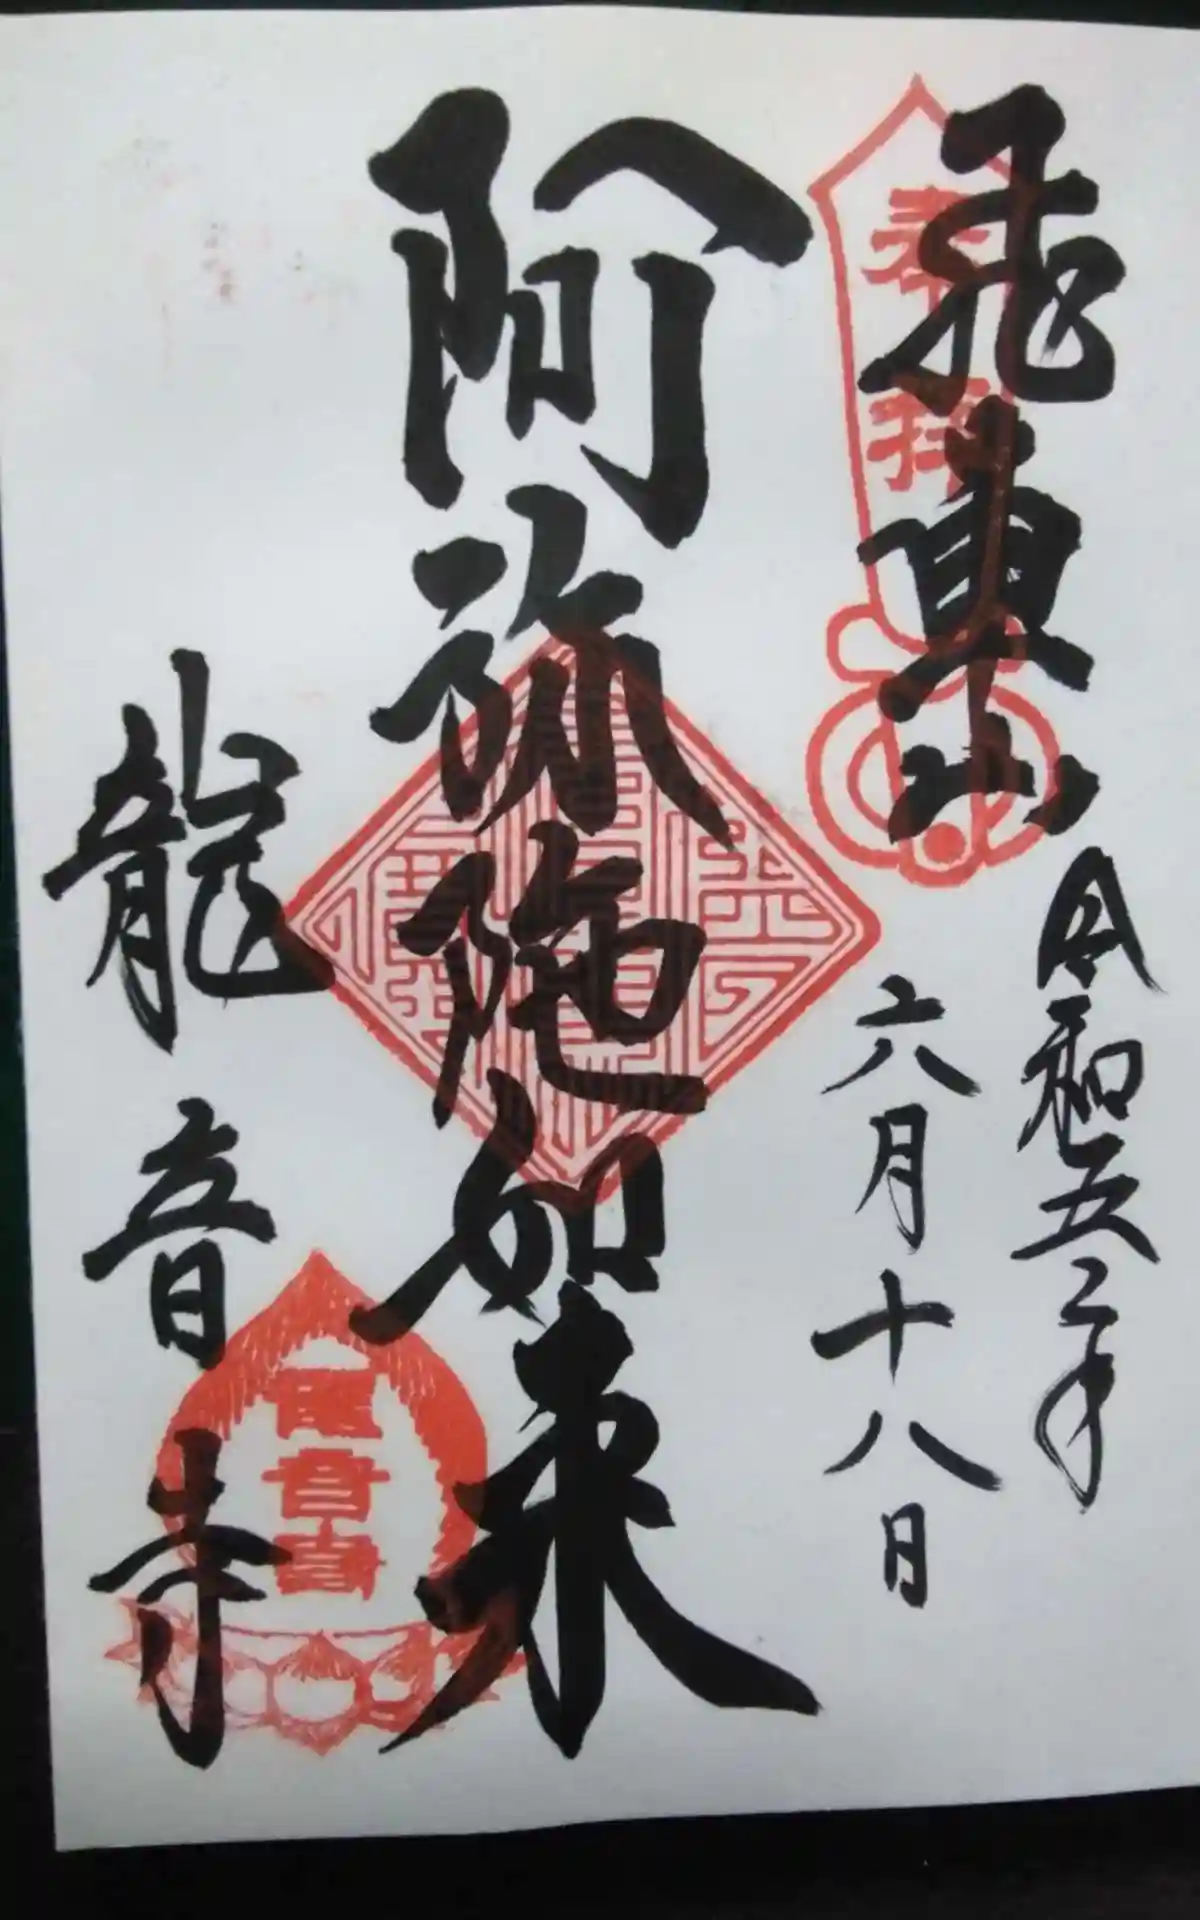 奉拝
飛車山
令和五年
六月十八日
阿弥陀如来
龍音寺
龍音寺